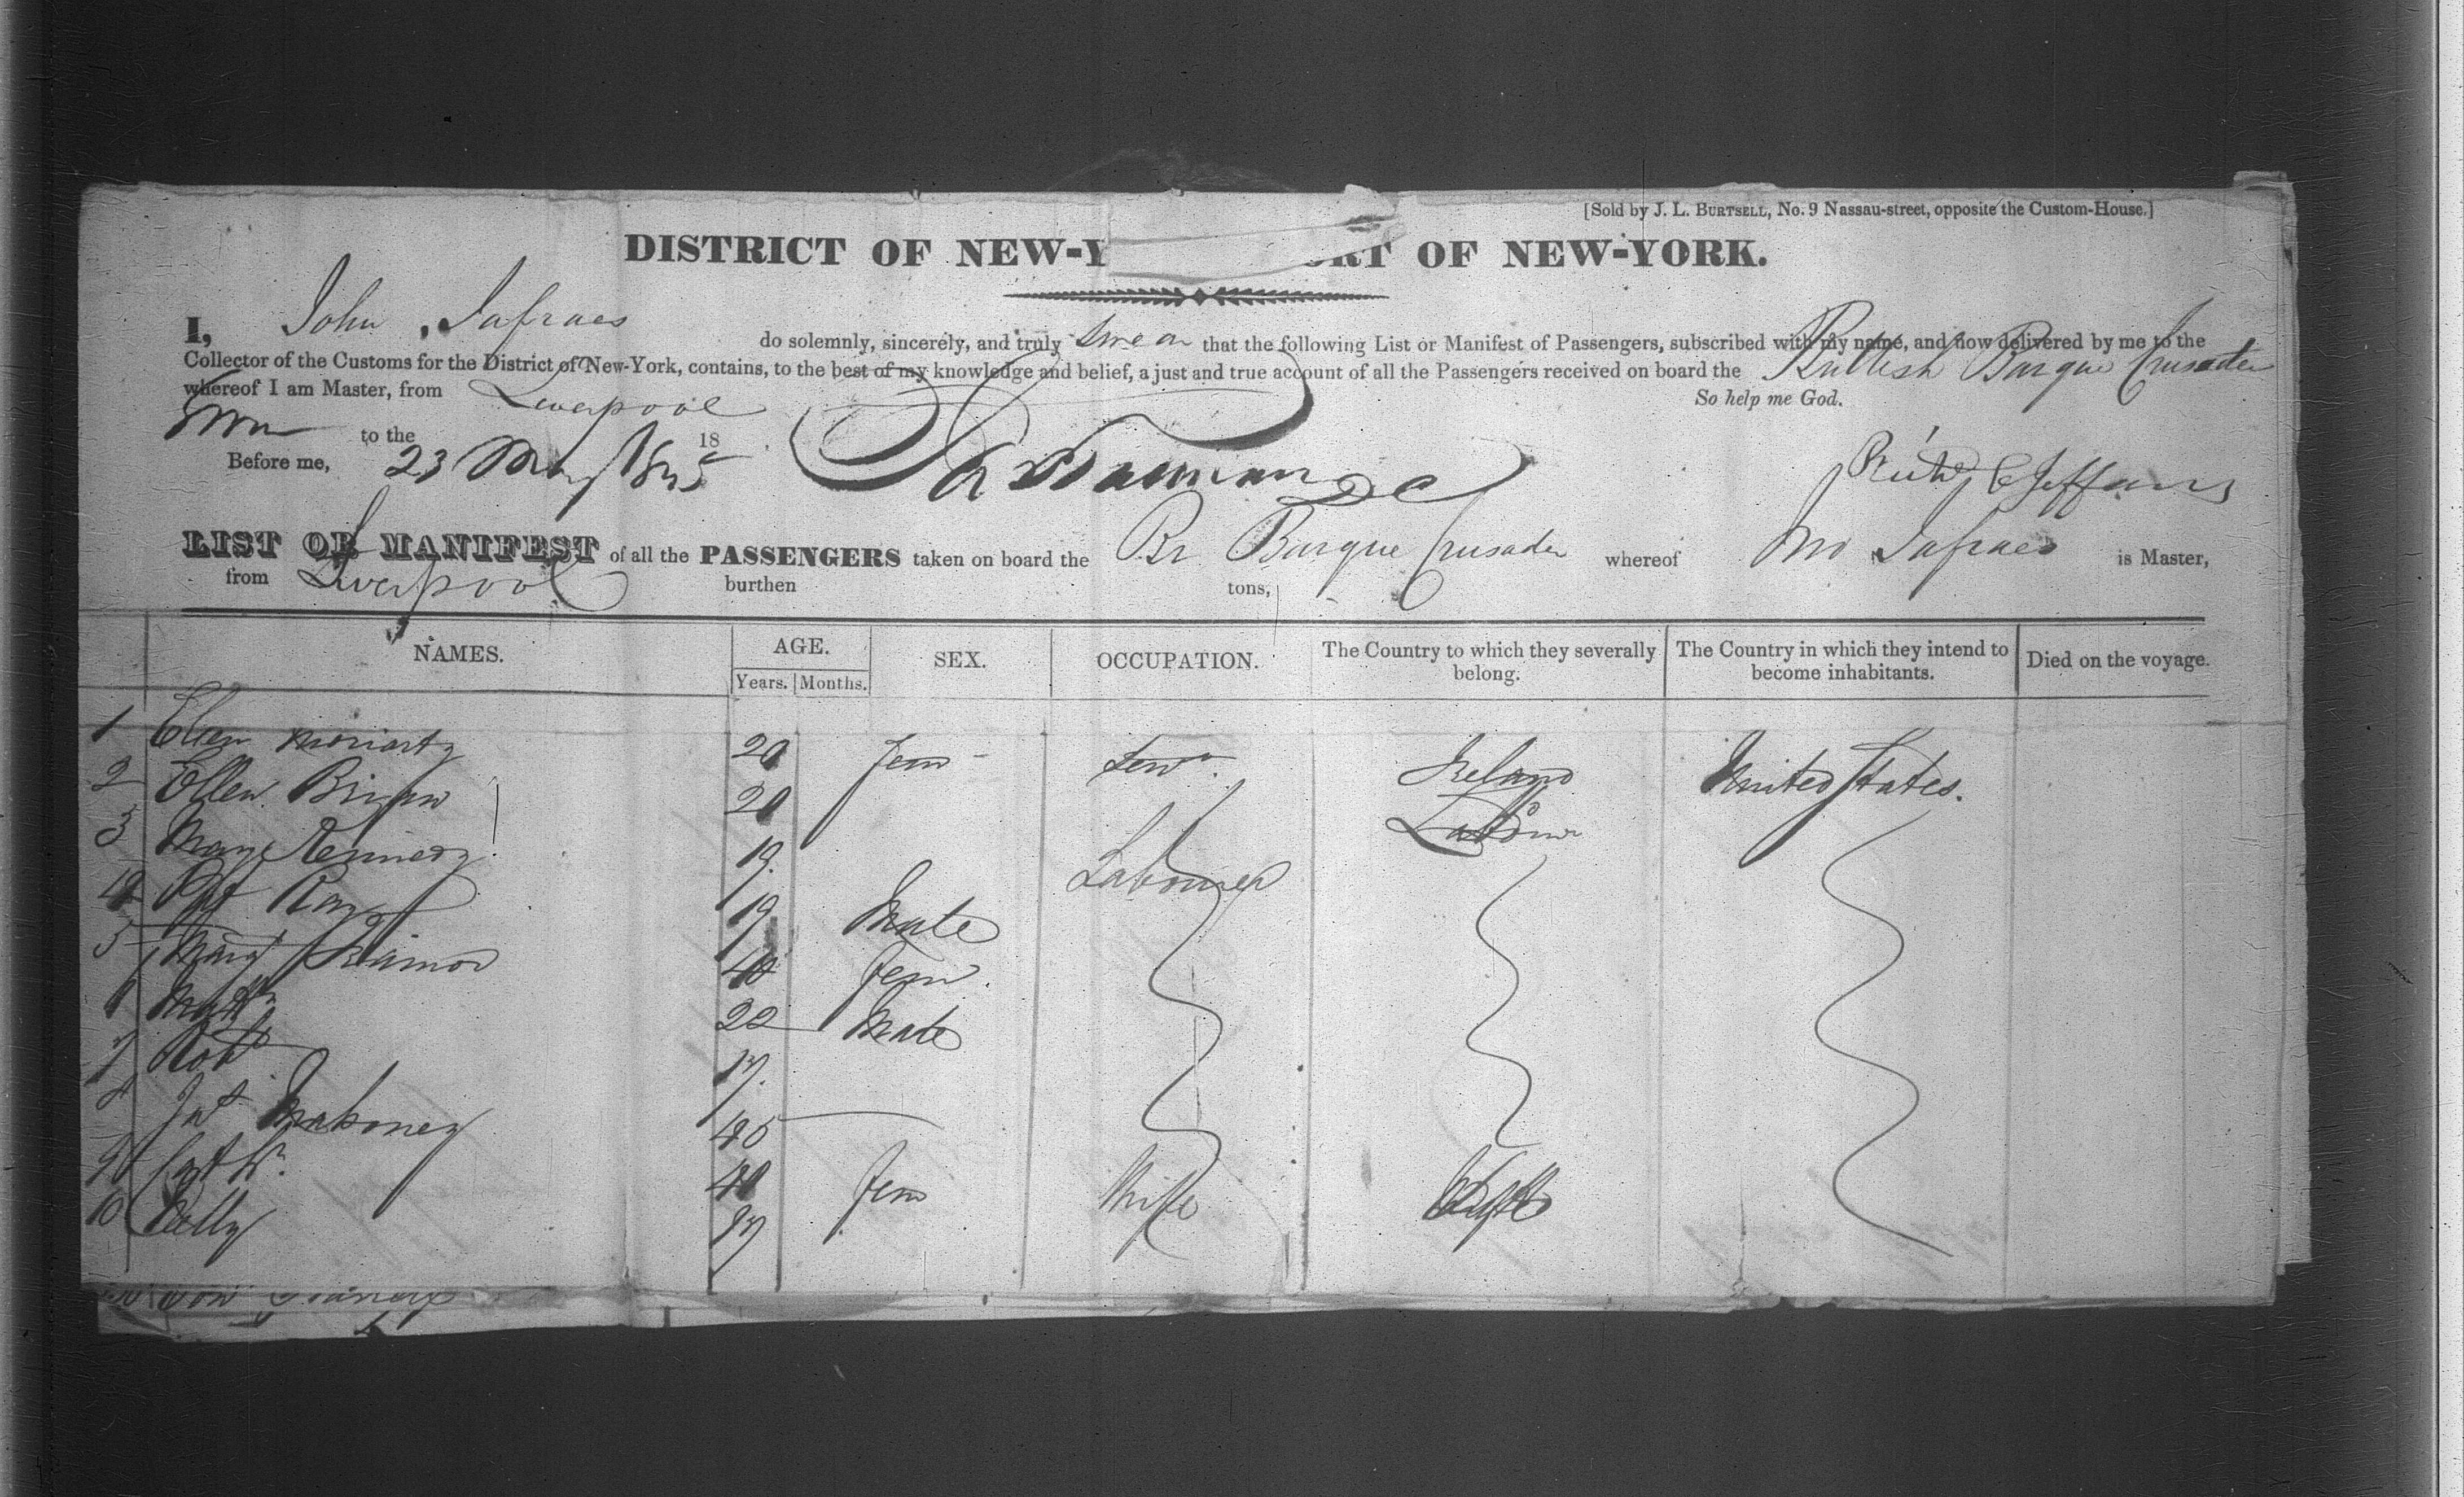 [Sold by J. L. BURTSELL, No. 9 Nassau-street, opposite the Custom-House.]
DISTRICT OF NEW-Y ORT OF NEW-YORK.
I, John Jafraes do solemnly, sincerely, and truly swear that the following List or Manifest of Passengers, subscribed with my name, and now delivered by me to the
Collector of the Customs for the District of New-York, contains, to the best of my knowledge and belief, a just and true account of all the Passengers received on board the British Barque Crusader
whereof I am Master, from Liverpool So help me God.
Sworn to the 23 May 1845 18
Before me,
LIST OR MANIFEST of all the PASSENGERS taken on board the Br Barque Crusader whereof Jno Jafraes is Master,
from Liverpool burthen tons,
NAMES. AGE. SEX. OCCUPATION. The Country to which they severally belong. The Country in which they intend to become inhabitants. Died on the voyage.
Years. Months.
1 Ellen Moriarty 20 Fem Ireland United States.
2 Ellen Bryan 20
3 Mary Kennedy 19 Labourer
4 Pat 19 Male
5 Mary 40 Fem
6 22 Male
7 Robt 17
8 Jas Mahoney 45
9 Cath 40 Fem Wife
10